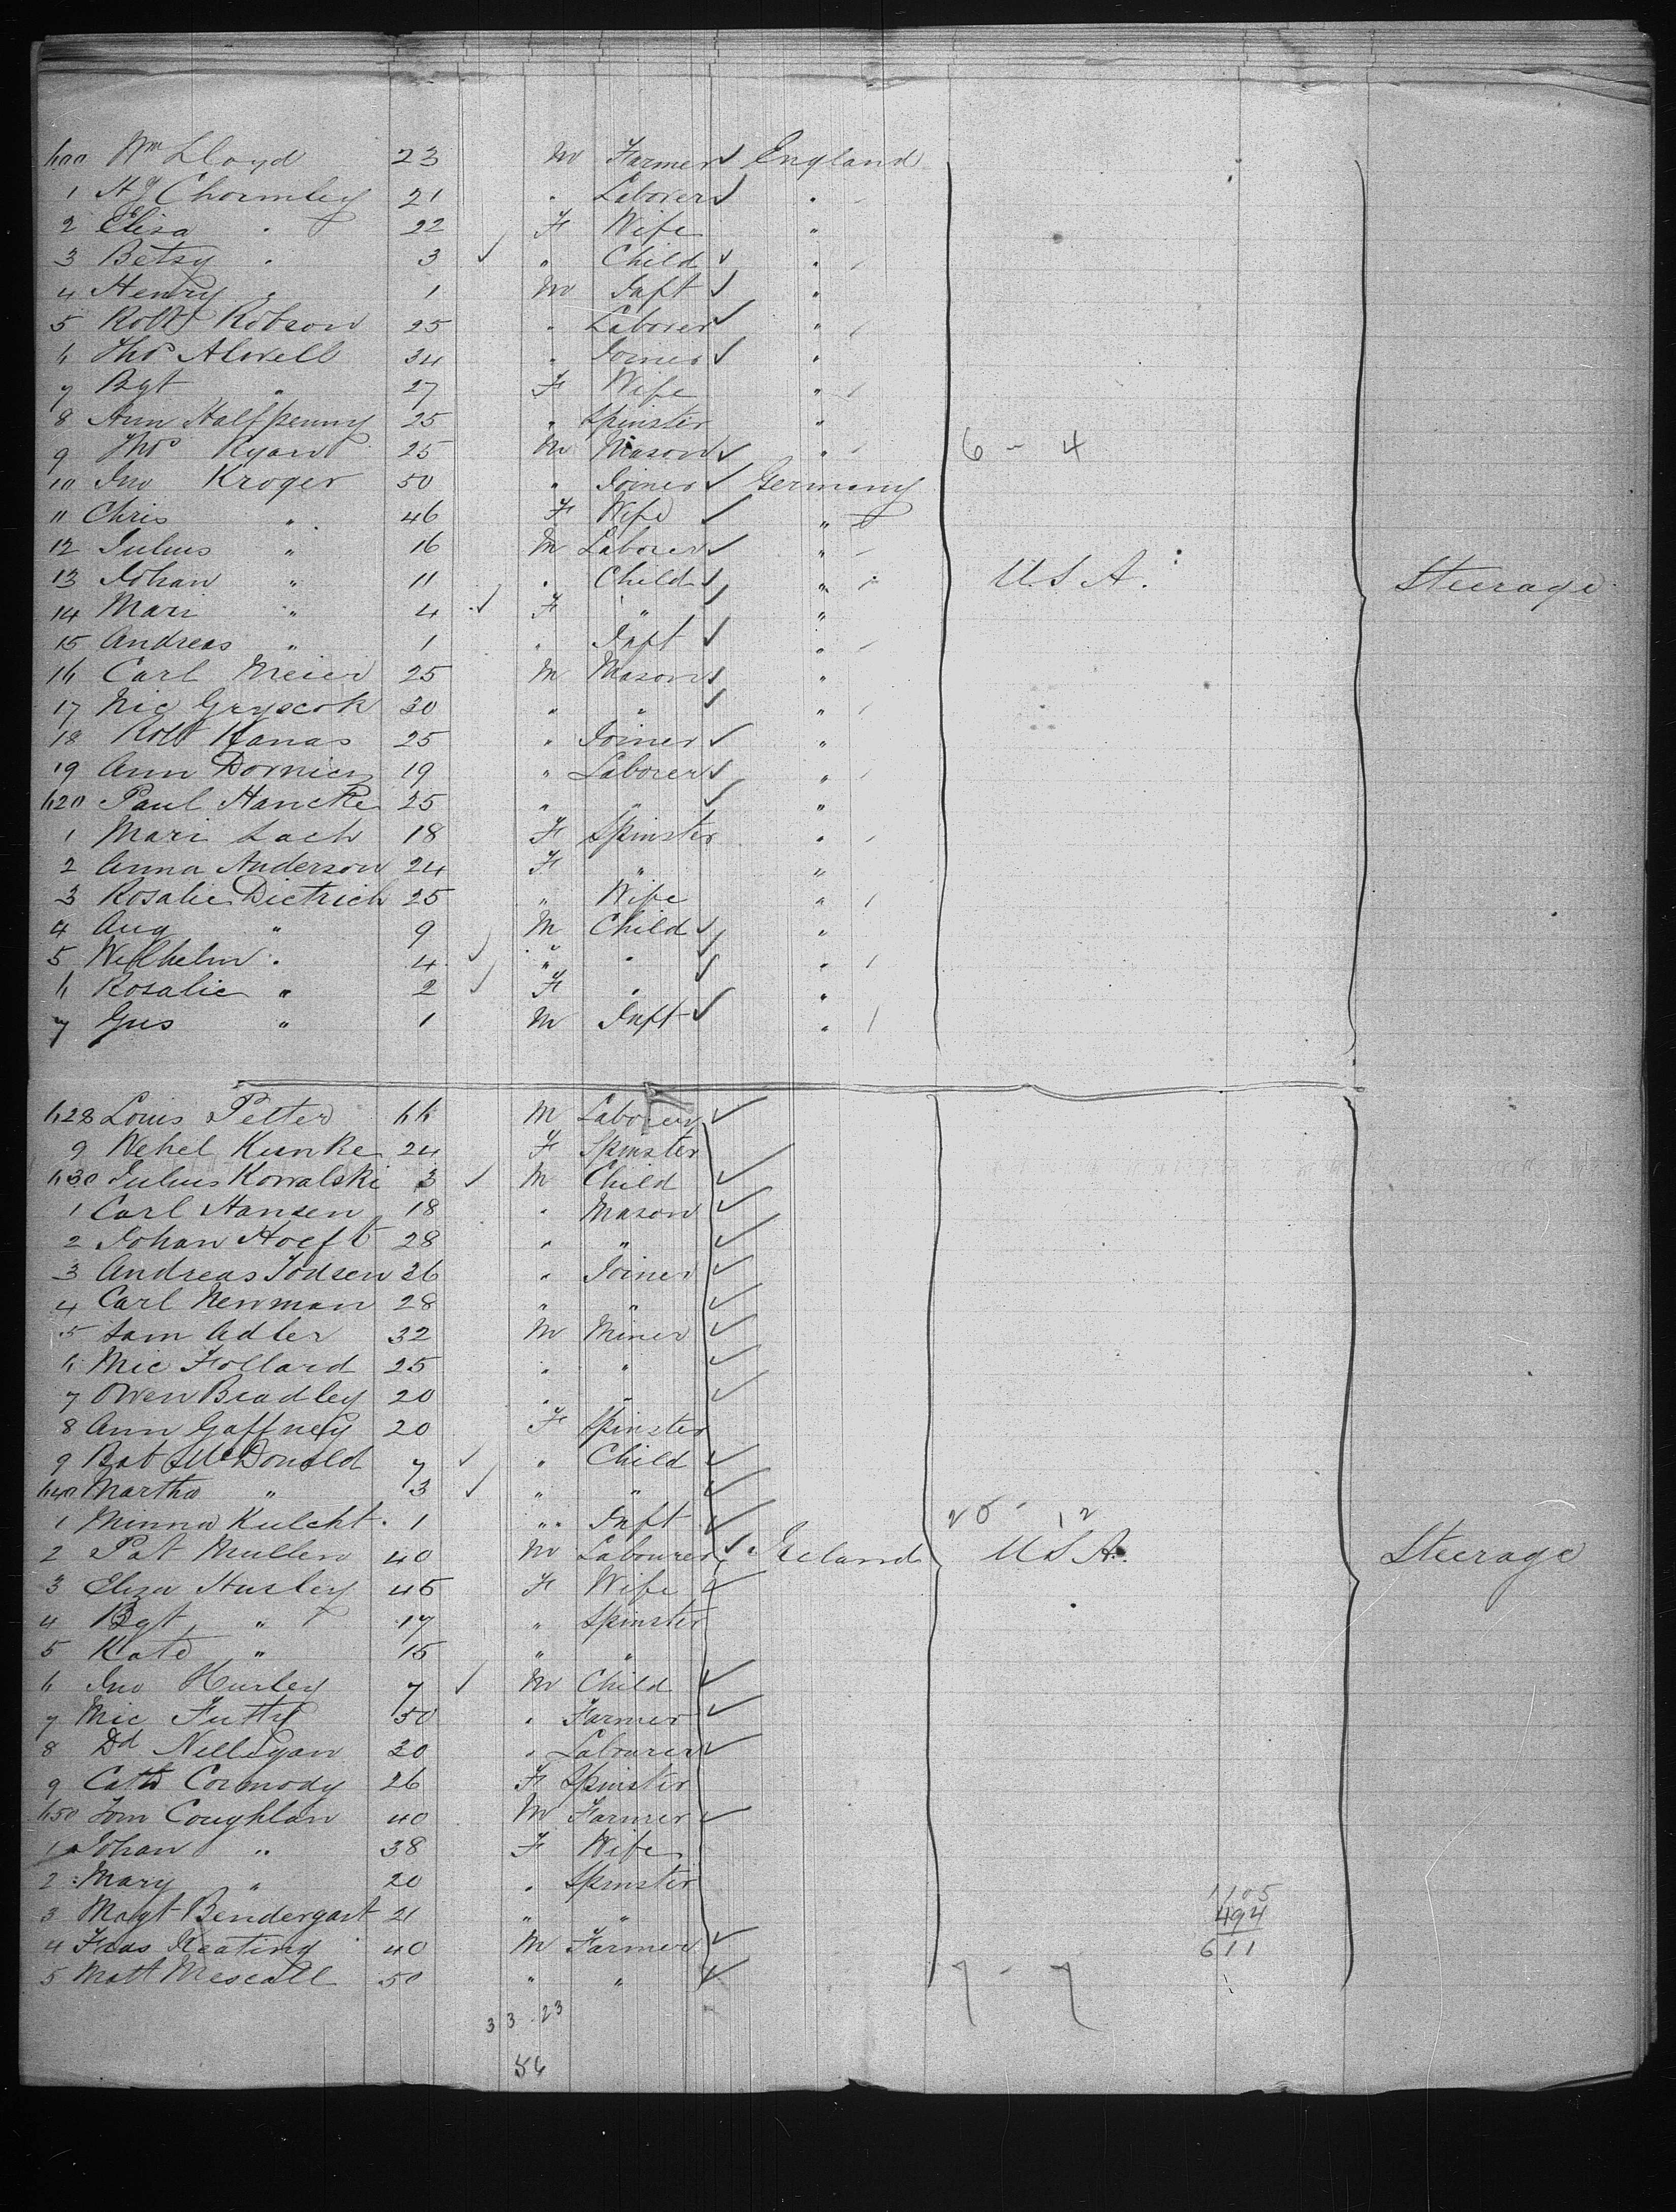 600 Wm Lloyd 23 M Farmer England
1 Hy Chormley 21 " Laborer "
2 Eliza " 22 F Wife "
3 Betsy " 3 " Child "
4 Henry " 1 M Inft "
5 Robt Robson 25 " Laborer "
6 Thos Alwell 34 " Joiner "
7 Bgt " 27 F Wife "
8 Ann Halfpenny 25 " Spinster "
9 Thos Ryan 25 M Mason " 6 - 4
10 Jno Kroger 50 " Joiner Germany
11 Chris " 46 F Wife "
12 Julius " 16 M Laborer "
13 Johan " 11 " Child " U.S.A. Steerage
14 Mari " 4 F " "
15 Andreas " 1 " Inft "
16 Carl Meier 25 M Mason "
17 Nic Gryscok 30 " " "
18 Robt Kanas 25 " Joiner "
19 Ann Dornien 19 " Laborer "
620 Paul Hancke 25 " " "
1 Mari Lach 18 F Spinster "
2 Anna Anderson 24 F " "
3 Rosalie Dietrich 25 " Wife "
4 Aug " 9 M Child "
5 Wilhelm " 4 " " "
6 Rosalie " 2 F " "
7 Gus " 1 M Inft "
628 Louis Petter 66 M Laborer
9 Wehel Kunke 24 F Spinster
630 Julius Kowalski 3 M Child
1 Carl Hansen 18 " Mason
2 Johan Hoeft 28 " "
3 Andreas Todsen 26 " Joiner
4 Carl Newman 28 " "
5 Sam Adler 32 M Miner
6 Mic Follard 25 " "
7 Owen Bradley 20 " "
8 Ann Gaffney 20 F Spinster
9 Bat McDonald 7 " Child
640 Martha " 3 " "
1 Minna Kulcht 1 " Inft 20 - 12
2 Pat Mullen 40 M Labourer Ireland U.S.A. Steerage
3 Eliza Hurley 45 F Wife
4 Bgt " 17 " Spinster
5 Kate " 15 " "
6 Jno Hurley 7 M Child
7 Mic Futty 50 " Farmer
8 Dd Nelligan 20 " Labourer
9 Cath Cormody 26 F Spinster
650 Tom Coughlan 40 M Farmer
1 Johan " 38 F Wife
2 Mary " 20 " Spinster 1105
3 Magt Bendergast 21 " " 494
4 Fras Keating 40 M Farmer 611
5 Matt Mescall 50 " " 7 - 7
33 . 23
56